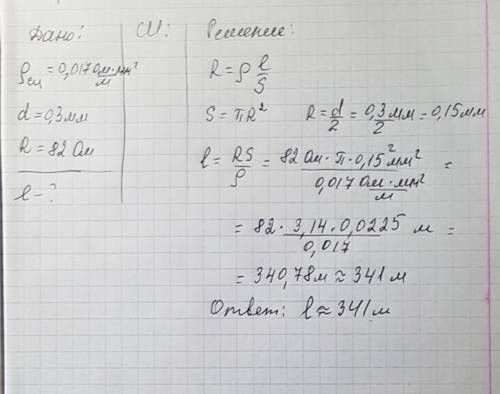 Дано:
ρси = 0,017 Ом·мм²/м
d = 0,3 мм
R = 82 Ом
l - ?
СИ:
Решение:
R = ρ l/S
S = πR² R = d/2 = 0,3 мм/2 = 0,15 мм
l = RS/ρ = 82 Ом · π · 0,15² мм² / 0,017 Ом·мм²/м =
= 82 · 3,14 · 0,0225 / 0,017 м =
= 340,78 м ≈ 341 м
Ответ: l ≈ 341 м